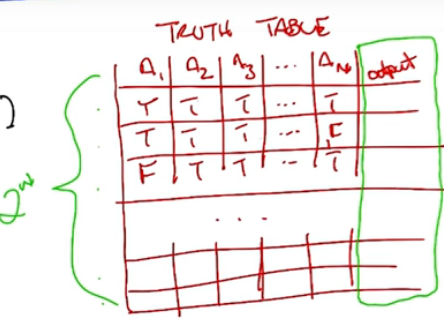 TRUTH TABLE
A₁ A₂ A₃ ... Aₙ output
T T T ... T
T T T ... F
F T T ... T
2ⁿ
...